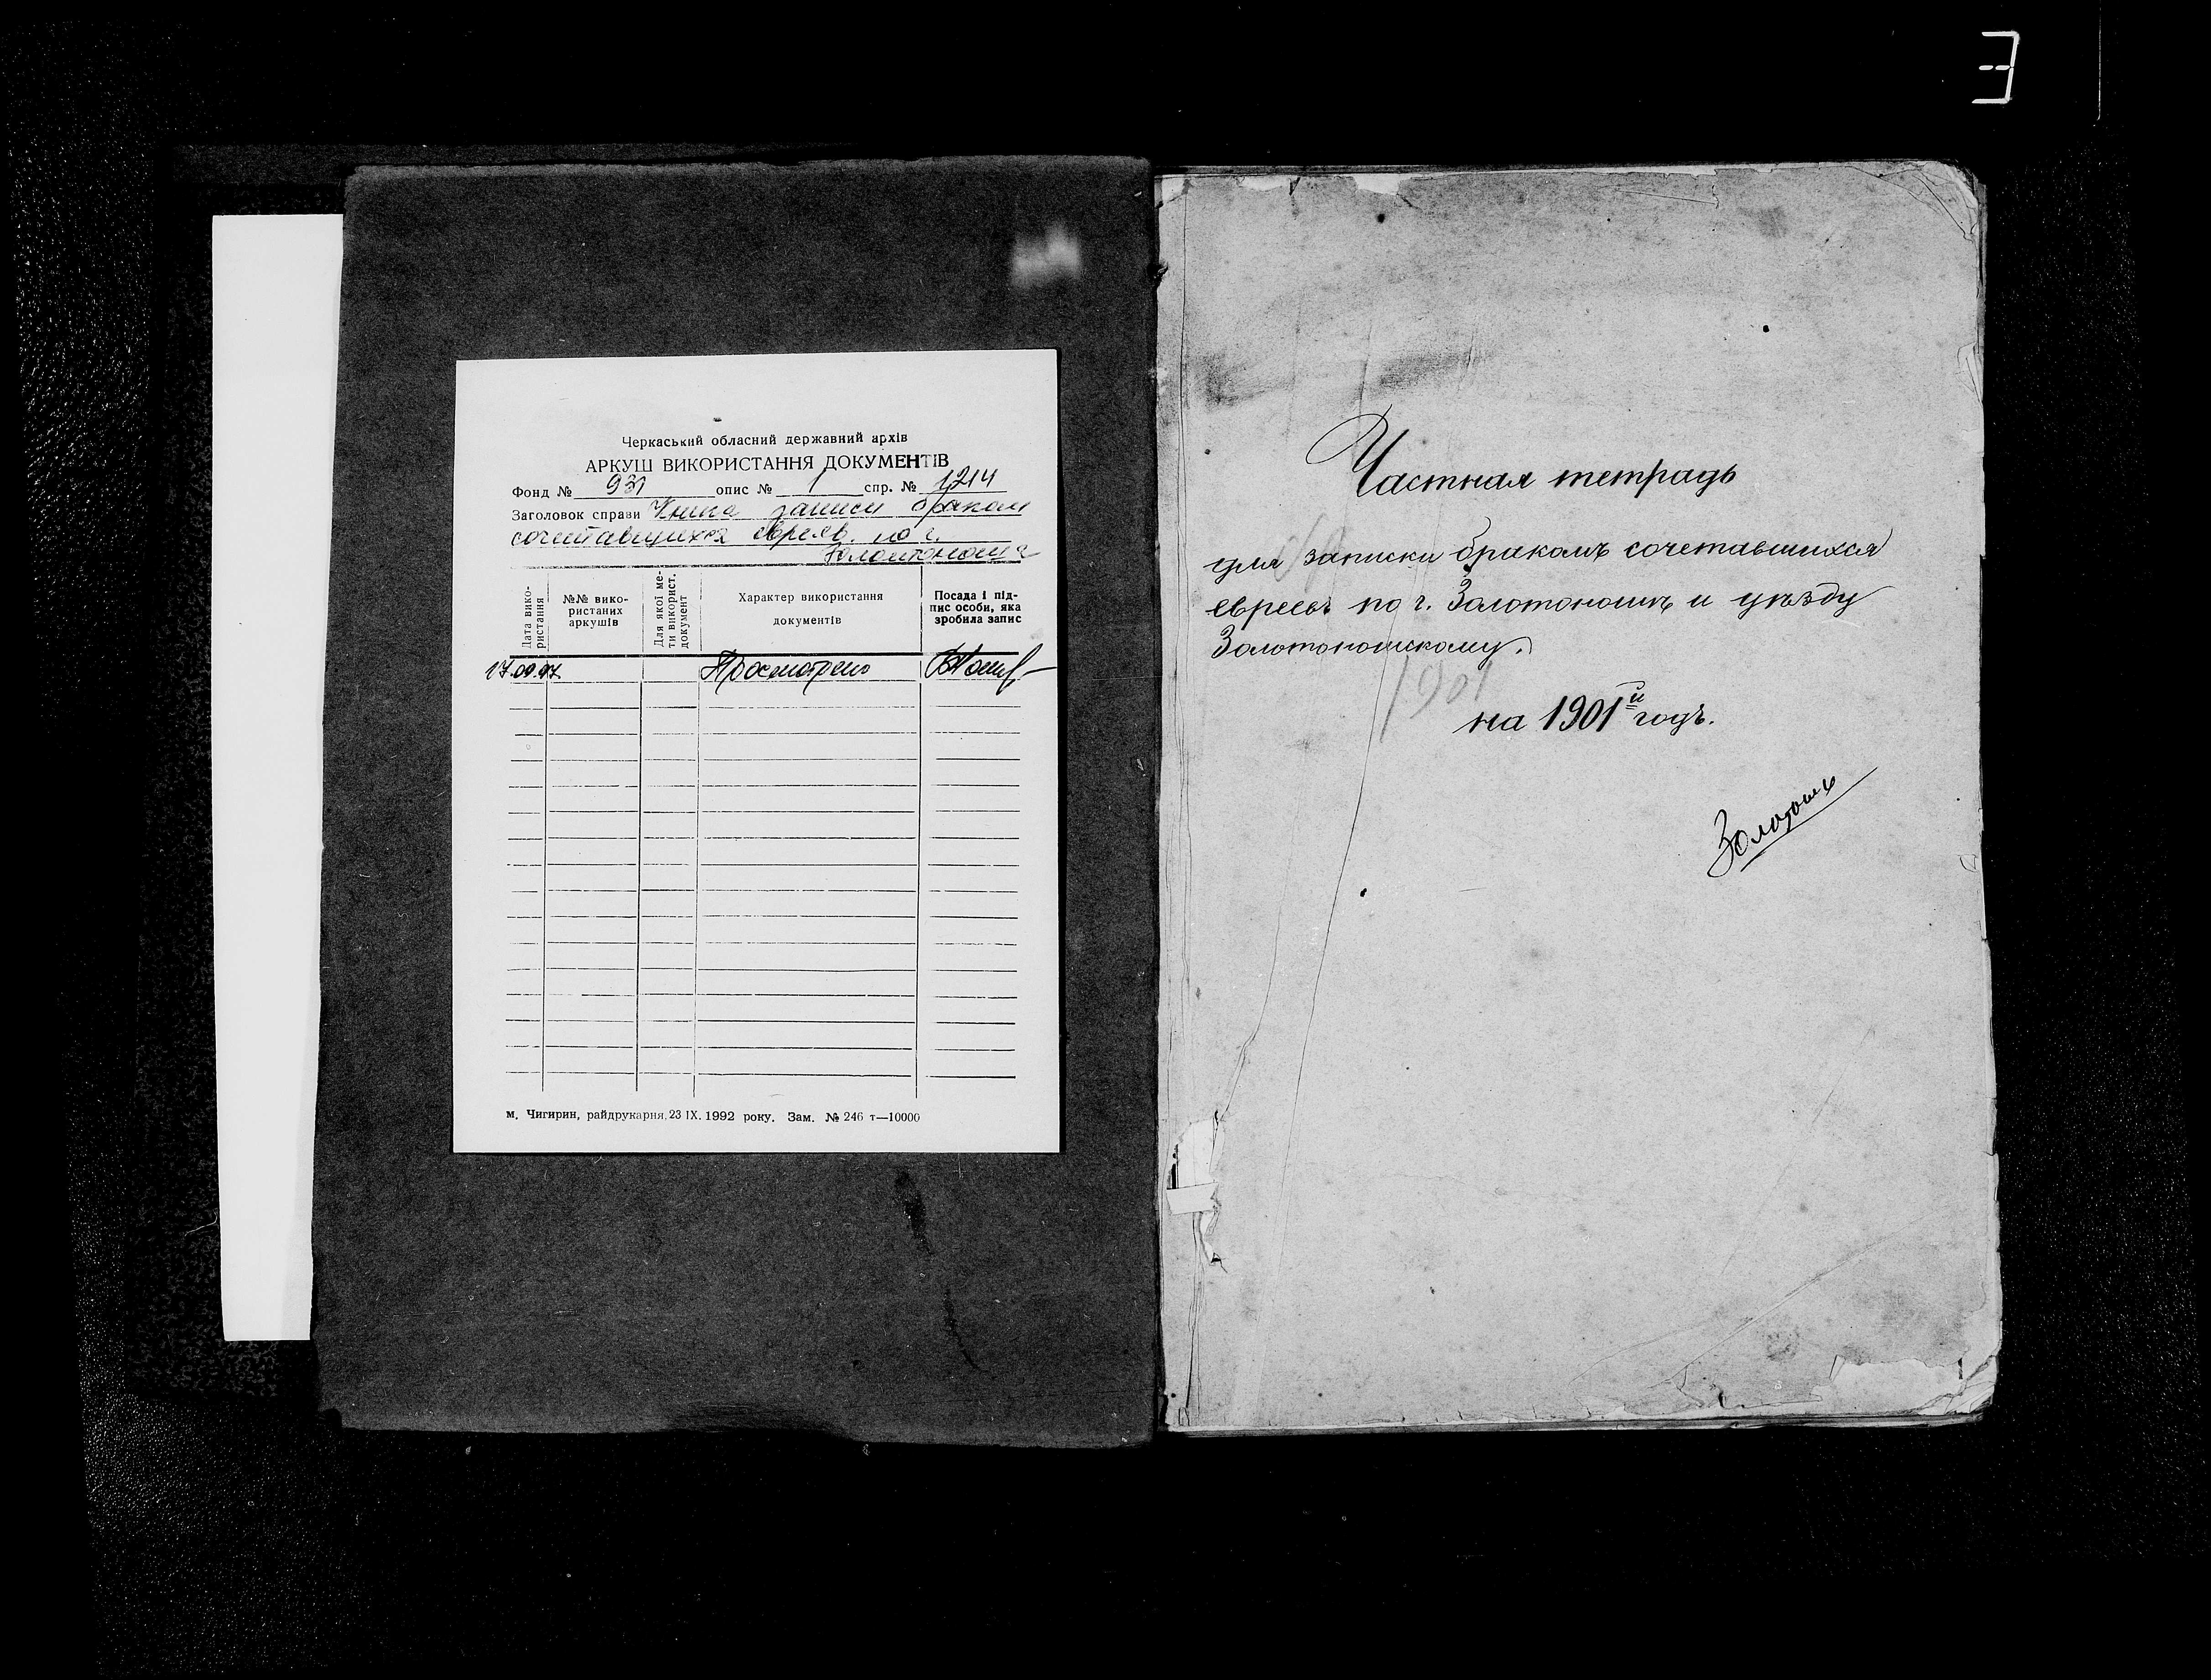 Черкаський обласний державний архів
АРКУШ ВИКОРИСТАННЯ ДОКУМЕНТІВ
Фонд № 931 опис № 1 спр. № 1214
Заголовок справи Книга записи браком
сочетавшихся евреев по г.
Золотоноша
Дата вико-
ристання
№№ вико-
ристаних
аркушів
Для якої ме-
ти використ.
документ
Характер використання
документів
Посада і під-
пис особи, яка
зробила запис
17.09.97 Просмотрено
м. Чигирин, райдрукарня, 23 IX. 1992 року. Зам. № 246 т—10000
Частная тетрадь
для записки бракомъ сочетавшихся
евреевъ по г. Золотоношѣ и уѣзду
Золотоношскому.
1901
на 1901й годъ.